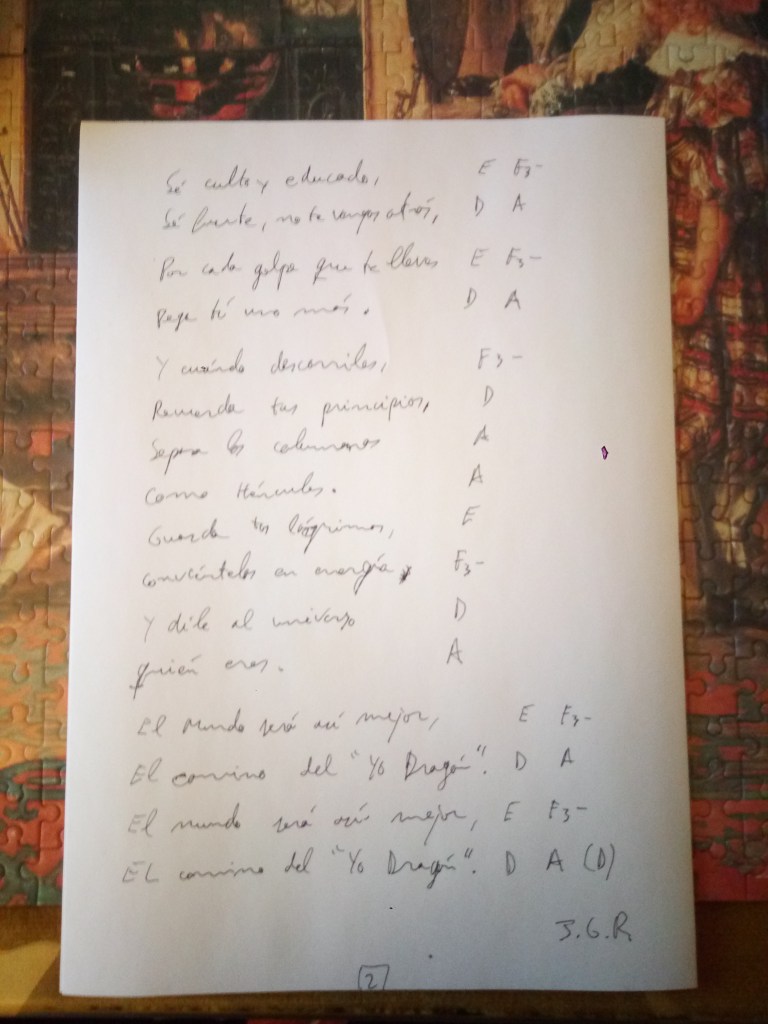 Sé culto y educado, E F3-
Sé fuerte, no te vengas atrás, D A
Por cada golpe que te llevas E F3-
Pega tú uno más. D A
Y cuándo descarriles, F3-
Recuerda tus principios, D
Separa las columnas A
Como Hércules. A
Guarda tus lágrimas, E
conviértelas en energía, F3-
Y dile al universo D
quién eres. A
El Mundo será así mejor, E F3-
El camino del "Yo Dragón". D A
El mundo será así mejor, E F3-
EL camino del "Yo Dragón". D A (D)
J.G.R.
2